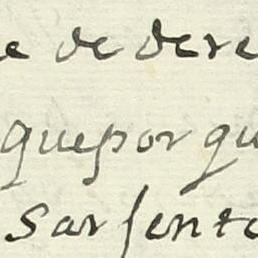 e de dere
quepor qu
sarsento